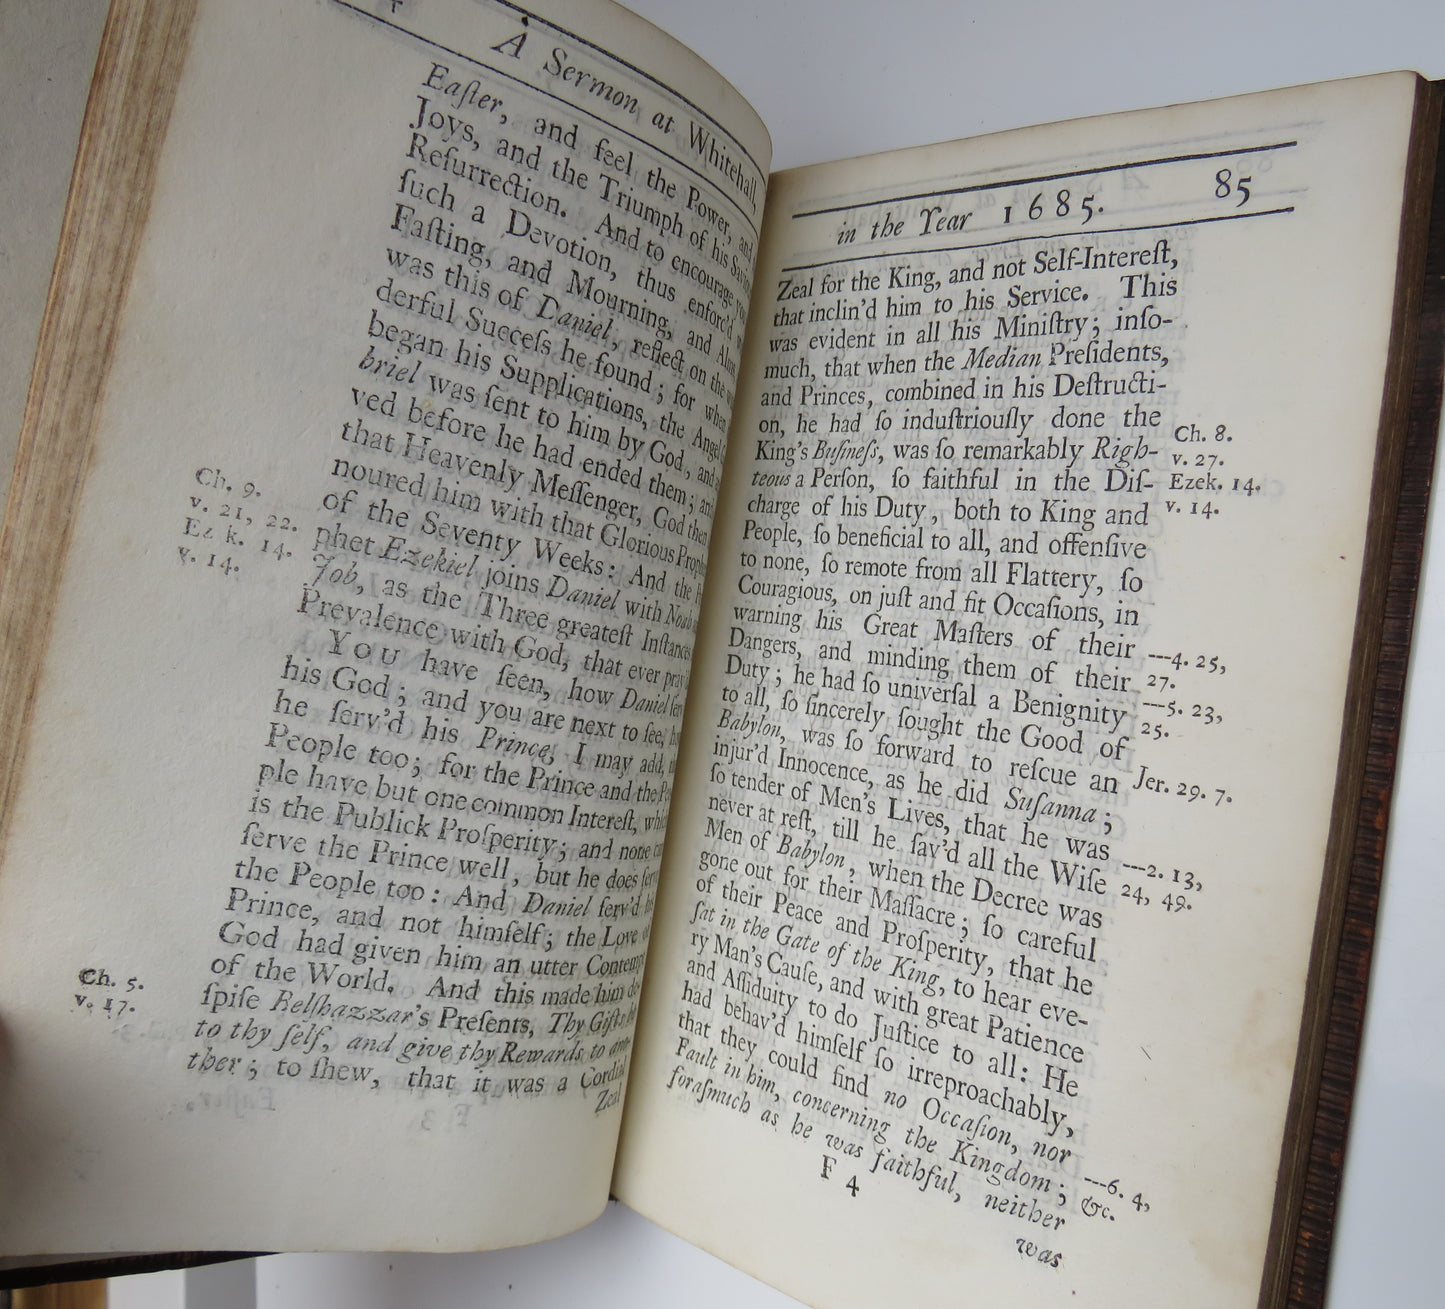 A Sermon at Whitehall,
Eaſter, and feel the Power, and
Joys, and the Triumph of his
Reſurrection. And to encourage you
ſuch a Devotion, thus enforc'd
Faſting, and Mourning, and
was this of Daniel, reflect on the
derful Succeſs he found; for when
began his Supplications, the Angel
briel was ſent to him by God, and
ved before he had ended them; and
that Heavenly Meſſenger, God then
noured him with that Glorious
of the Seventy Weeks: And the
Ch. 9.
v. 21, 22.
Ezek. 14.
v. 14.
phet Ezekiel joins Daniel with
Job, as the Three greateſt Inſtances
Prevalence with God, that ever
YOU have ſeen, how Daniel
his God; and you are next to ſee,
he ſerv'd his Prince, I may add,
People too; for the Prince and the
ple have but one common Intereſt,
is the Publick Proſperity; and none
ſerve the Prince well, but he does
the People too: And Daniel ſerv'd
Prince, and not himſelf; the Love
God had given him an utter
of the World. And this made him
Ch. 5.
v. 17.
ſpiſe Belſhazzar's Preſents, Thy
to thy ſelf, and give thy Rewards to
ther; to ſhew, that it was a Cordial
Zeal
in the Year 1685. 85
Zeal for the King, and not Self-Intereſt,
that inclin'd him to his Service. This
was evident in all his Miniſtry; inſo-
much, that when the Median Preſidents,
and Princes, combined in his Deſtructi-
on, he had ſo induſtriouſly done the
King's Buſineſs, was ſo remarkably Righ-
teous a Perſon, ſo faithful in the Diſ-
charge of his Duty, both to King and
People, ſo beneficial to all, and offenſive
to none, ſo remote from all Flattery, ſo
Couragious, on juſt and fit Occaſions, in
warning his Great Maſters of their
Dangers, and minding them of their
Duty; he had ſo univerſal a Benignity
to all, ſo ſincerely ſought the Good of
Babylon, was ſo forward to reſcue an
injur'd Innocence, as he did Suſanna;
ſo tender of Men's Lives, that he was
never at reſt, till he ſav'd all the Wiſe
Men of Babylon, when the Decree was
gone out for their Maſſacre; ſo careful
of their Peace and Proſperity, that he
ſat in the Gate of the King, to hear eve-
ry Man's Cauſe, and with great Patience
and Aſſiduity to do Juſtice to all: He
had behav'd himſelf ſo irreproachably,
that they could find no Occaſion, nor
Fault in him, concerning the Kingdom;
foraſmuch as he was faithful, neither
Ch. 8.
v. 27.
Ezek. 14.
v. 14.
---4. 25,
27.
---5. 23,
25.
Jer. 29. 7.
---2. 13,
24, 49.
---6. 4,
&c.
F 4
was